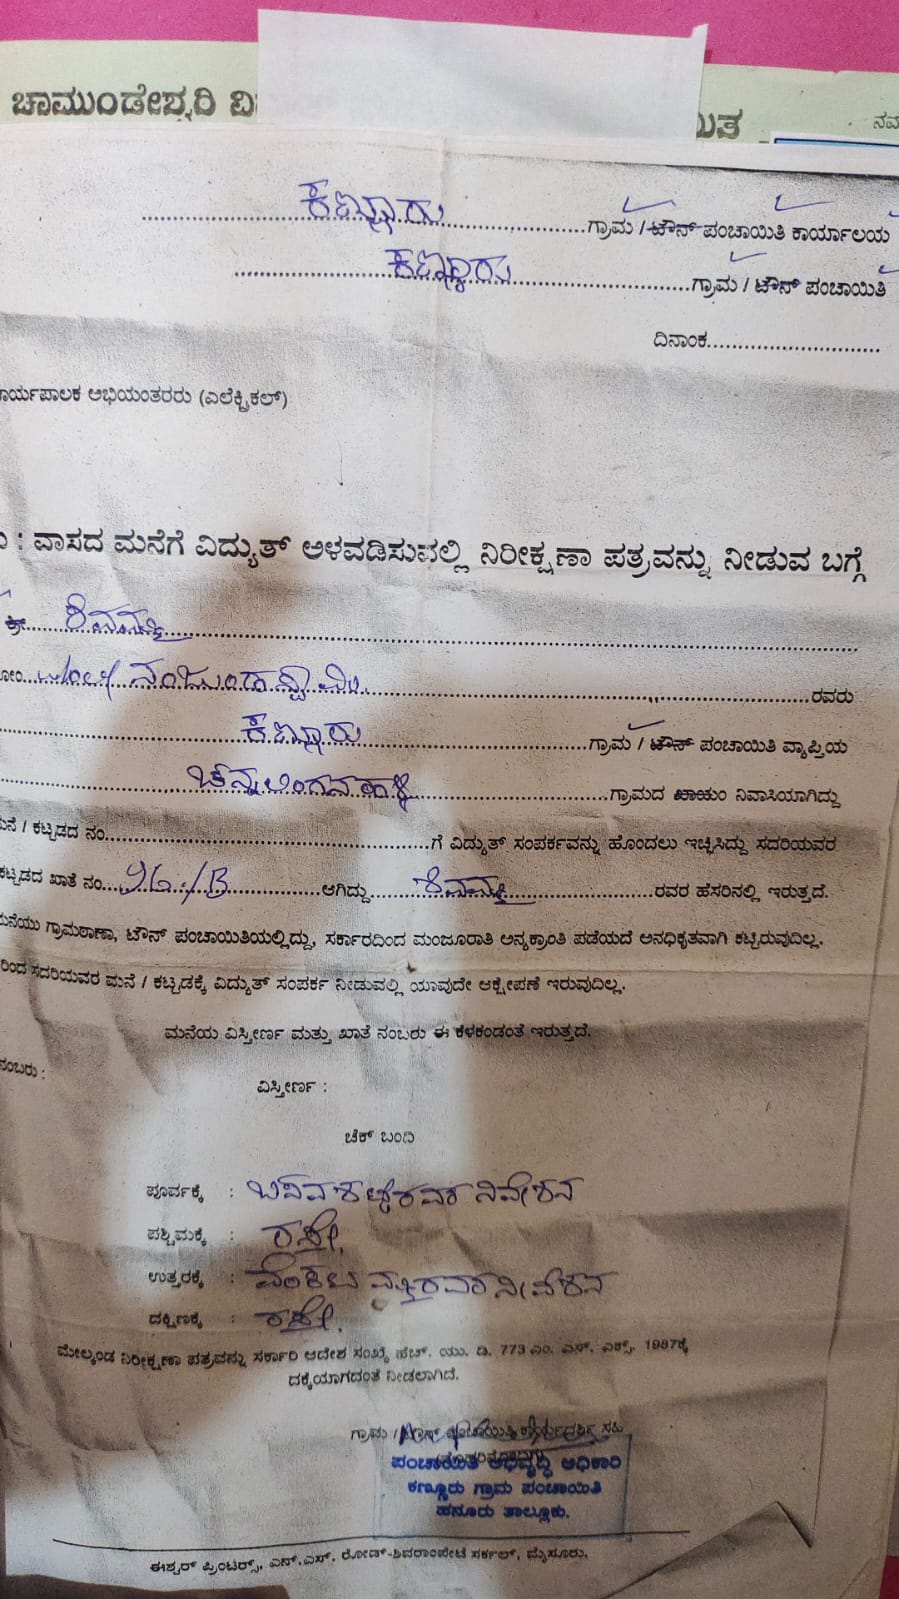 ಚಾಮುಂಡೇಶ್ವರಿ ವಿ
ಕಣ್ಣೂರು ಗ್ರಾಮ / ಟೌನ್ ಪಂಚಾಯಿತಿ ಕಾರ್ಯಾಲಯ
ಕಣ್ಣೂರು ಗ್ರಾಮ / ಟೌನ್ ಪಂಚಾಯಿತಿ
ದಿನಾಂಕ
ಾರ್ಯಪಾಲಕ ಅಭಿಯಂತರರು (ಎಲೆಕ್ಟ್ರಿಕಲ್)
: ವಾಸದ ಮನೆಗೆ ವಿದ್ಯುತ್ ಅಳವಡಿಸುವಲ್ಲಿ ನಿರೀಕ್ಷಣಾ ಪತ್ರವನ್ನು ನೀಡುವ ಬಗ್ಗೆ
ಶಿವಮ್ಮ
ನಂಜುಂಡಸ್ವಾಮಿ ರವರು
ಕಣ್ಣೂರು ಗ್ರಾಮ / ಟೌನ್ ಪಂಚಾಯಿತಿ ವ್ಯಾಪ್ತಿಯ
ಚೆನ್ನಲಿಂಗನಹಳ್ಳಿ ಗ್ರಾಮದ ಖಾಯಂ ನಿವಾಸಿಯಾಗಿದ್ದು
ಮನೆ / ಕಟ್ಟಡದ ನಂ. ಗೆ ವಿದ್ಯುತ್ ಸಂಪರ್ಕವನ್ನು ಹೊಂದಲು ಇಚ್ಛಿಸಿದ್ದು ಸದರಿಯವರ
ಕಟ್ಟಡದ ಖಾತೆ ನಂ. ಆಗಿದ್ದು ಶಿವಮ್ಮ ರವರ ಹೆಸರಿನಲ್ಲಿ ಇರುತ್ತದೆ.
ಮನೆಯು ಗ್ರಾಮಠಾಣಾ, ಟೌನ್ ಪಂಚಾಯಿತಿಯಲ್ಲಿದ್ದು, ಸರ್ಕಾರದಿಂದ ಮಂಜೂರಾತಿ ಅನ್ಯಕ್ರಾಂತಿ ಪಡೆಯದೆ ಅನಧಿಕೃತವಾಗಿ ಕಟ್ಟಿರುವುದಿಲ್ಲ.
ರಿಂದ ಸದರಿಯವರ ಮನೆ / ಕಟ್ಟಡಕ್ಕೆ ವಿದ್ಯುತ್ ಸಂಪರ್ಕ ನೀಡುವಲ್ಲಿ ಯಾವುದೇ ಆಕ್ಷೇಪಣೆ ಇರುವುದಿಲ್ಲ.
ಮನೆಯ ವಿಸ್ತೀರ್ಣ ಮತ್ತು ಖಾತೆ ನಂಬರು ಈ ಕೆಳಕಂಡಂತೆ ಇರುತ್ತದೆ.
ನಂಬರು :
ವಿಸ್ತೀರ್ಣ :
ಚೆಕ್ ಬಂದಿ
ಪೂರ್ವಕ್ಕೆ : ನಿವೇಶನ
ಪಶ್ಚಿಮಕ್ಕೆ : ರಸ್ತೆ.
ಉತ್ತರಕ್ಕೆ : ನಿವೇಶನ
ದಕ್ಷಿಣಕ್ಕೆ : ರಸ್ತೆ.
ಮೇಲ್ಕಂಡ ನಿರೀಕ್ಷಣಾ ಪತ್ರವನ್ನು ಸರ್ಕಾರಿ ಆದೇಶ ಸಂಖ್ಯೆ ಹೆಚ್. ಯು. ಡಿ. 773 ಎಂ. ಎನ್. ಎಕ್ಸ್. 1987ಕ್ಕೆ
ದಕ್ಕೆಯಾಗದಂತೆ ನೀಡಲಾಗಿದೆ.
ಗ್ರಾಮ / ಟೌನ್ ಪಂಚಾಯಿತಿ ಕಾರ್ಯದರ್ಶಿ ಸಹಿ
ಪಂಚಾಯಿತಿ ಅಭಿವೃದ್ಧಿ ಅಧಿಕಾರಿ
ಕಣ್ಣೂರು ಗ್ರಾಮ ಪಂಚಾಯಿತಿ
ಹನೂರು ತಾಲ್ಲೂಕು.
ಈಶ್ವರ್ ಪ್ರಿಂಟರ್ಸ್, ಎನ್.ಎಸ್. ರೋಡ್-ಶಿವರಾಂಪೇಟೆ ಸರ್ಕಲ್, ಮೈಸೂರು.